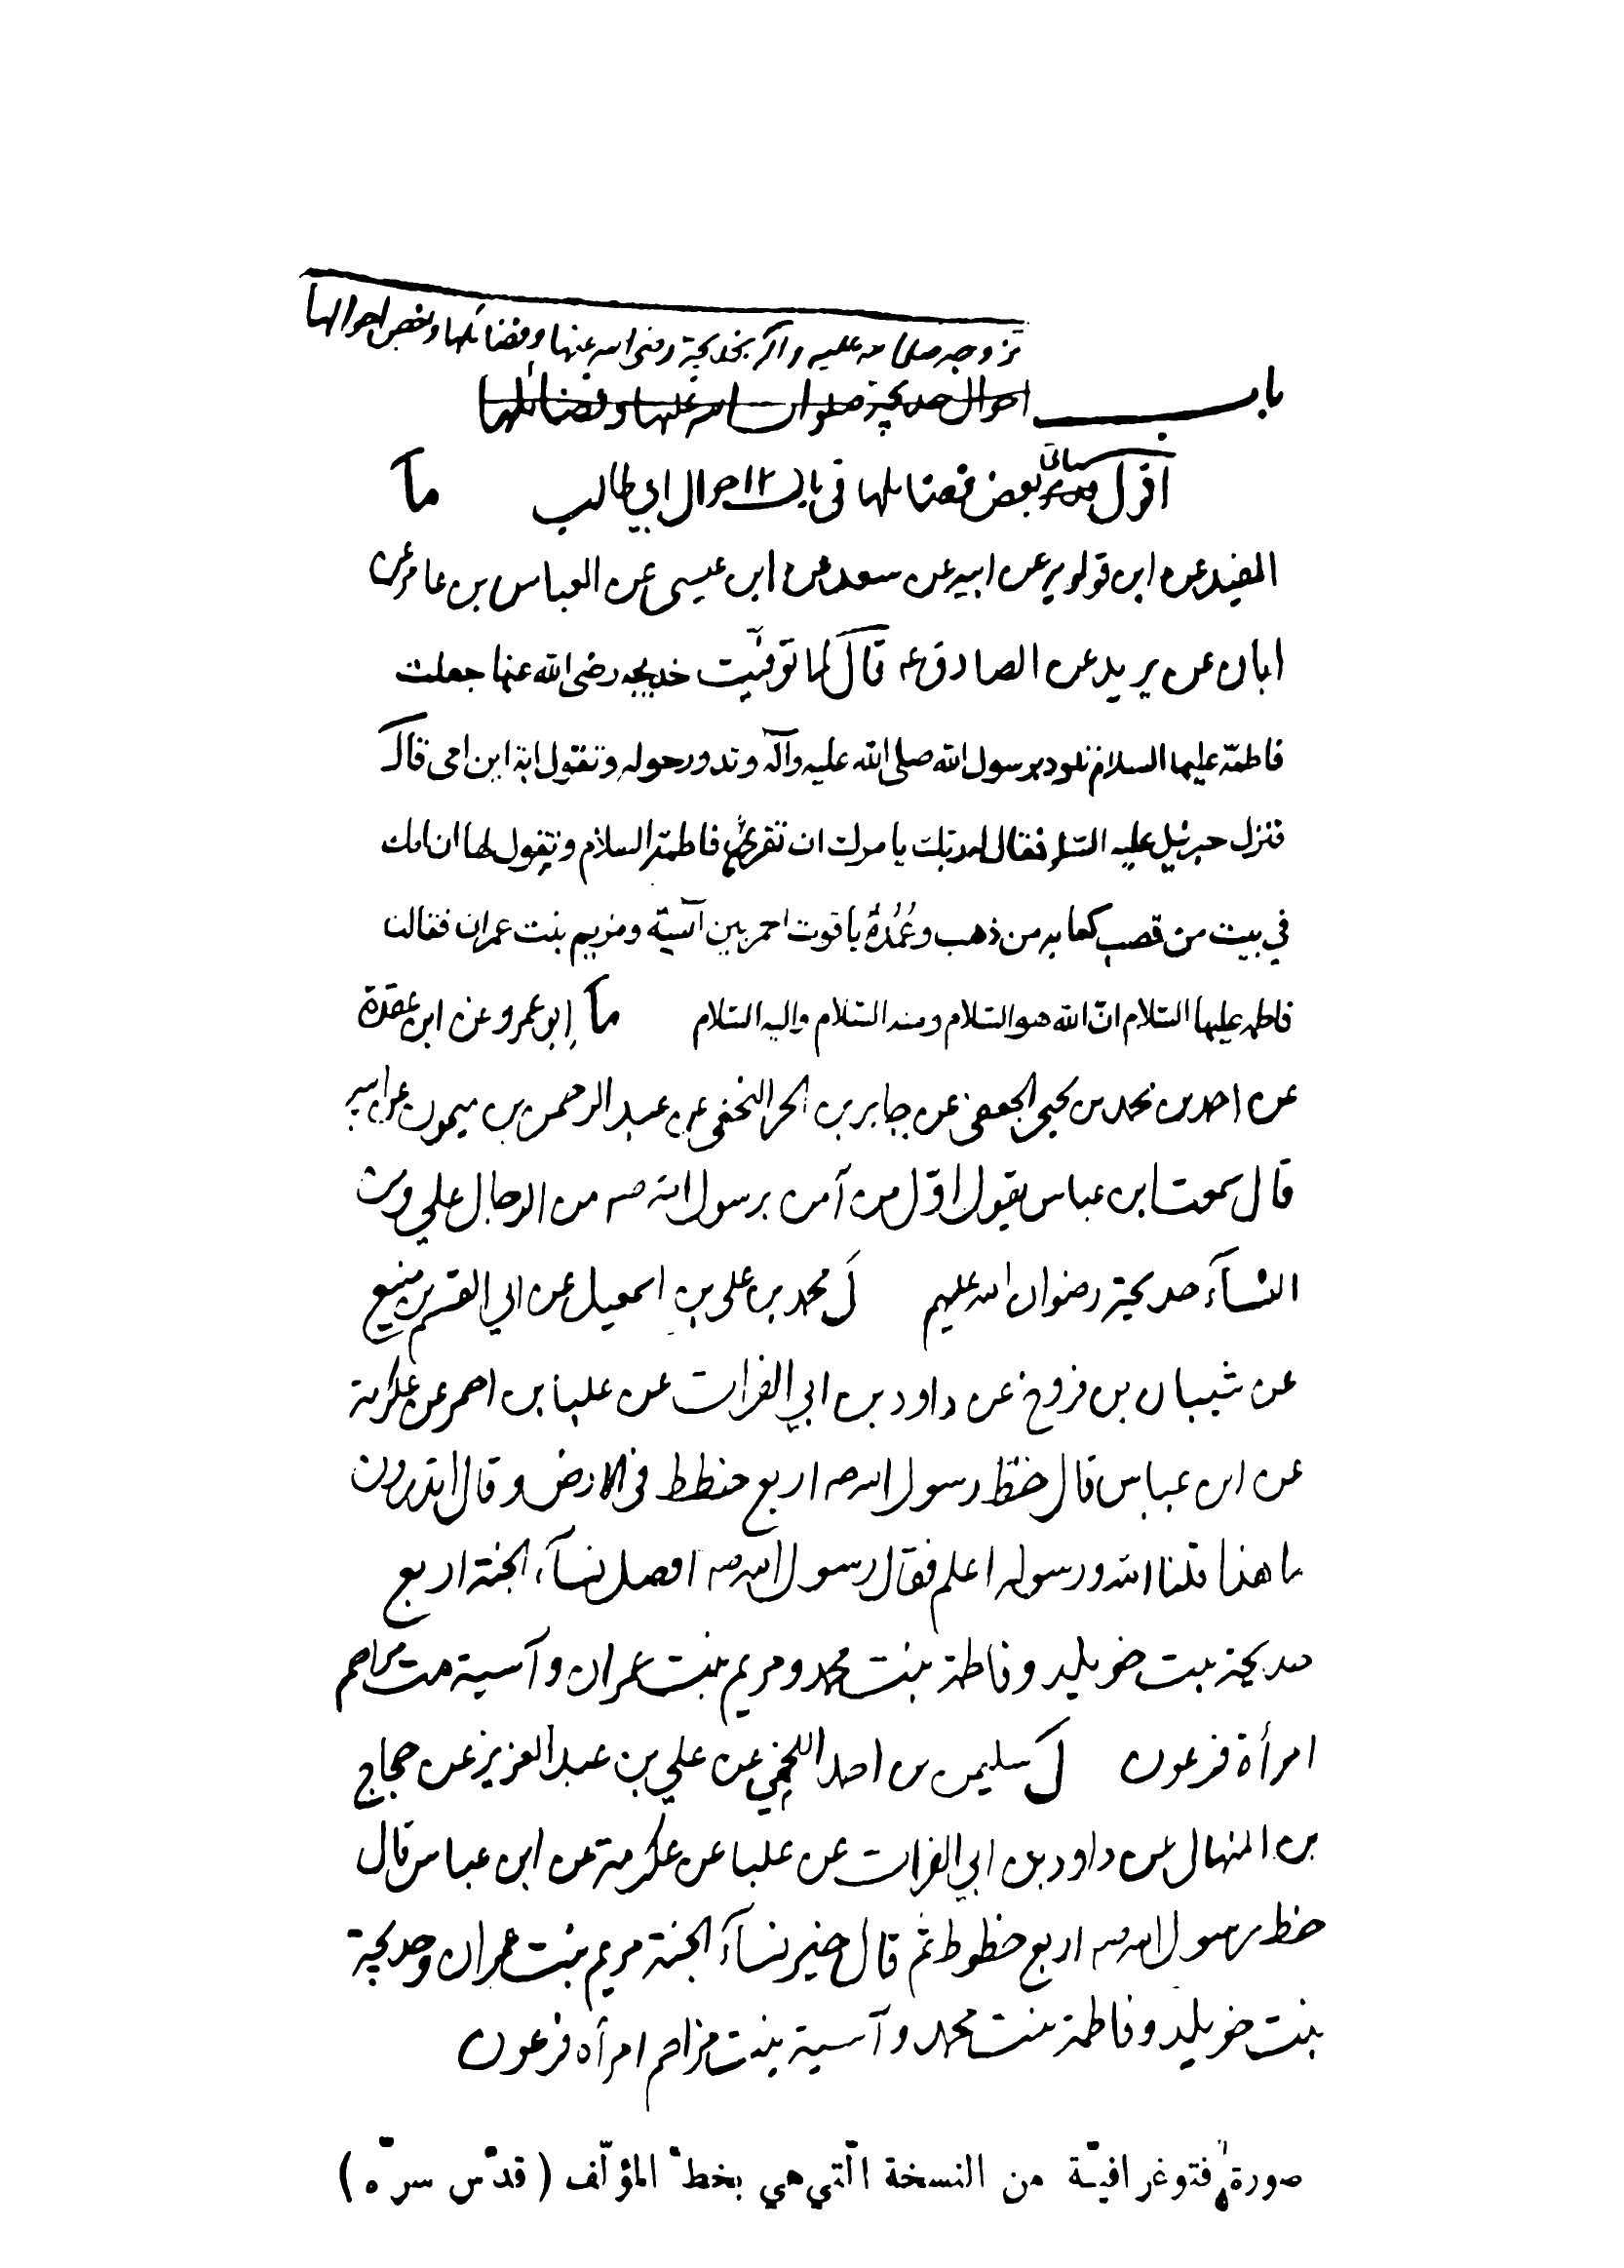 تزوجه صلى الله عليه وآله بخديجة رضى الله عنها وفضائلها وبعض احوالها
باب احوال خديجة صلوات الله عليها وفضائلها
اقول سيأتى بعض فضايلها فى باب احوال ابي طالب ما
المفيد عن ابن قولويه عن ابيه عن سعد عن ابن عيسى عن العباس بن عامر عن
ابان عن بريد عن الصادق ع قال لما توفيت خديجه رضى الله عنها جعلت
فاطمة عليها السلام تلوذ برسول الله صلى الله عليه وآله وتدور حوله وتقول ابة اين امى قال
فنزل جبرئيل عليه السلم فقال له ربك يامرك ان تقرئ فاطمة السلام وتقول لها ان امك
في بيت من قصب كعابه من ذهب وعُمُدُهُ ياقوت احمر بين آسية ومريم بنت عمران فقالت
فاطمه عليها السّلام انّ الله هو السّلام ومنه السّلام واليه السّلام ما ابو عمرو عن ابن عقدة
عن احمد بن محمد بن يحيى الجعفى عن جابر بن الحر النخعى عن عبد الرحمن بن ميمون عن ابيه
قال سمعت ابن عباس يقول اوّل من آمن برسول الله ص من الرجال علي ومن
النسآء خديجة رضوان الله عليهم ل محمد بن على بن اسمعيل عن ابي القسم بن منيع
عن شيبان بن فروخ عن داود بن ابي الفرات عن علبا بن احمر عن عكرمة
عن ابن عباس قال خط رسول الله ص اربع خطط فى الارض وقال اتدرون
ما هذا قلنا الله ورسوله اعلم فقال رسول الله ص افضل نسآء الجنة اربع
خديجة بنت خويلد وفاطمة بنت محمد ومريم بنت عمران وآسية بنت مزاحم
امرأة فرعون ل سليمن بن احمد اللخمي عن علي بن عبد العزيز عن حجاج
بن المنهال عن داود بن ابي الفرات عن علبا عن عكرمة عن ابن عباس قال
خط رسول الله ص اربع خطوط ثم قال خير نسآء الجنة مريم بنت عمران وخديجة
بنت خويلد وفاطمة بنت محمد وآسية بنت مزاحم امرأه فرعون
صورة فتوغرافيّة من النسخة الّتي هي بخط المؤلّف ( قدّس سرّه )